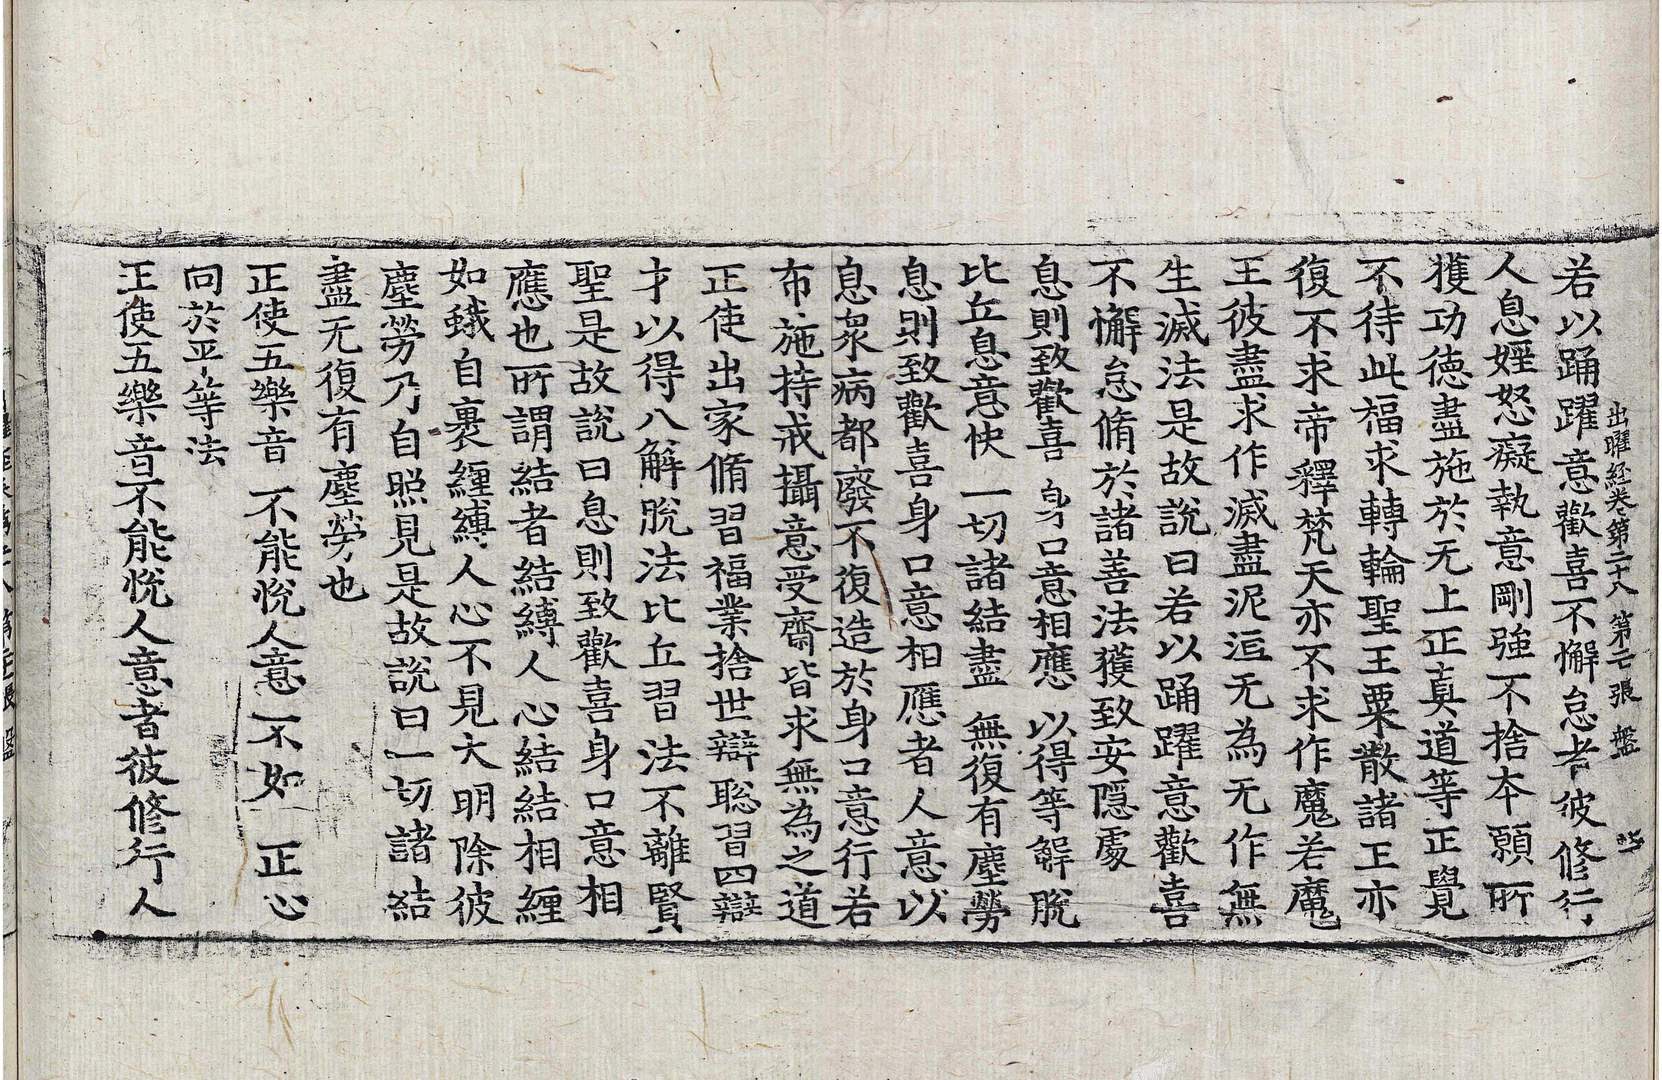 出曜経卷第二十八 第二張 盤
若以踊躍意歡喜不懈怠者彼修行
人息婬怒癡執意剛強不捨本願所
獲功德盡施於无上正真道等正覺
不待此福求轉輪聖王粟散諸王亦
復不求帝釋梵天亦不求作魔若魔
王彼盡求作滅盡泥洹无為无作無
生滅法是故說曰若以踊躍意歡喜
不懈怠脩於諸善法獲致安隱處
息則致歡喜 身口意相應 以得等解脫
比丘息意快 一切諸結盡 無復有塵勞
息則致歡喜身口意相應者人意以
息衆病都廢不復造於身口意行若
布施持戒攝意受齋皆求無為之道
正使出家脩習福業捨世辯聡習四辯
才以得八解脫法比丘習法不離賢
聖是故說曰息則致歡喜身口意相
應也所謂結者結縛人心結結相纏
如蛾自裹纏縛人心不見大明除彼
塵勞乃自照見是故說曰一切諸結
盡无復有塵勞也
正使五樂音 不能悅人意 不如一正心
向於平等法
正使五樂音不能悅人意者彼修行人